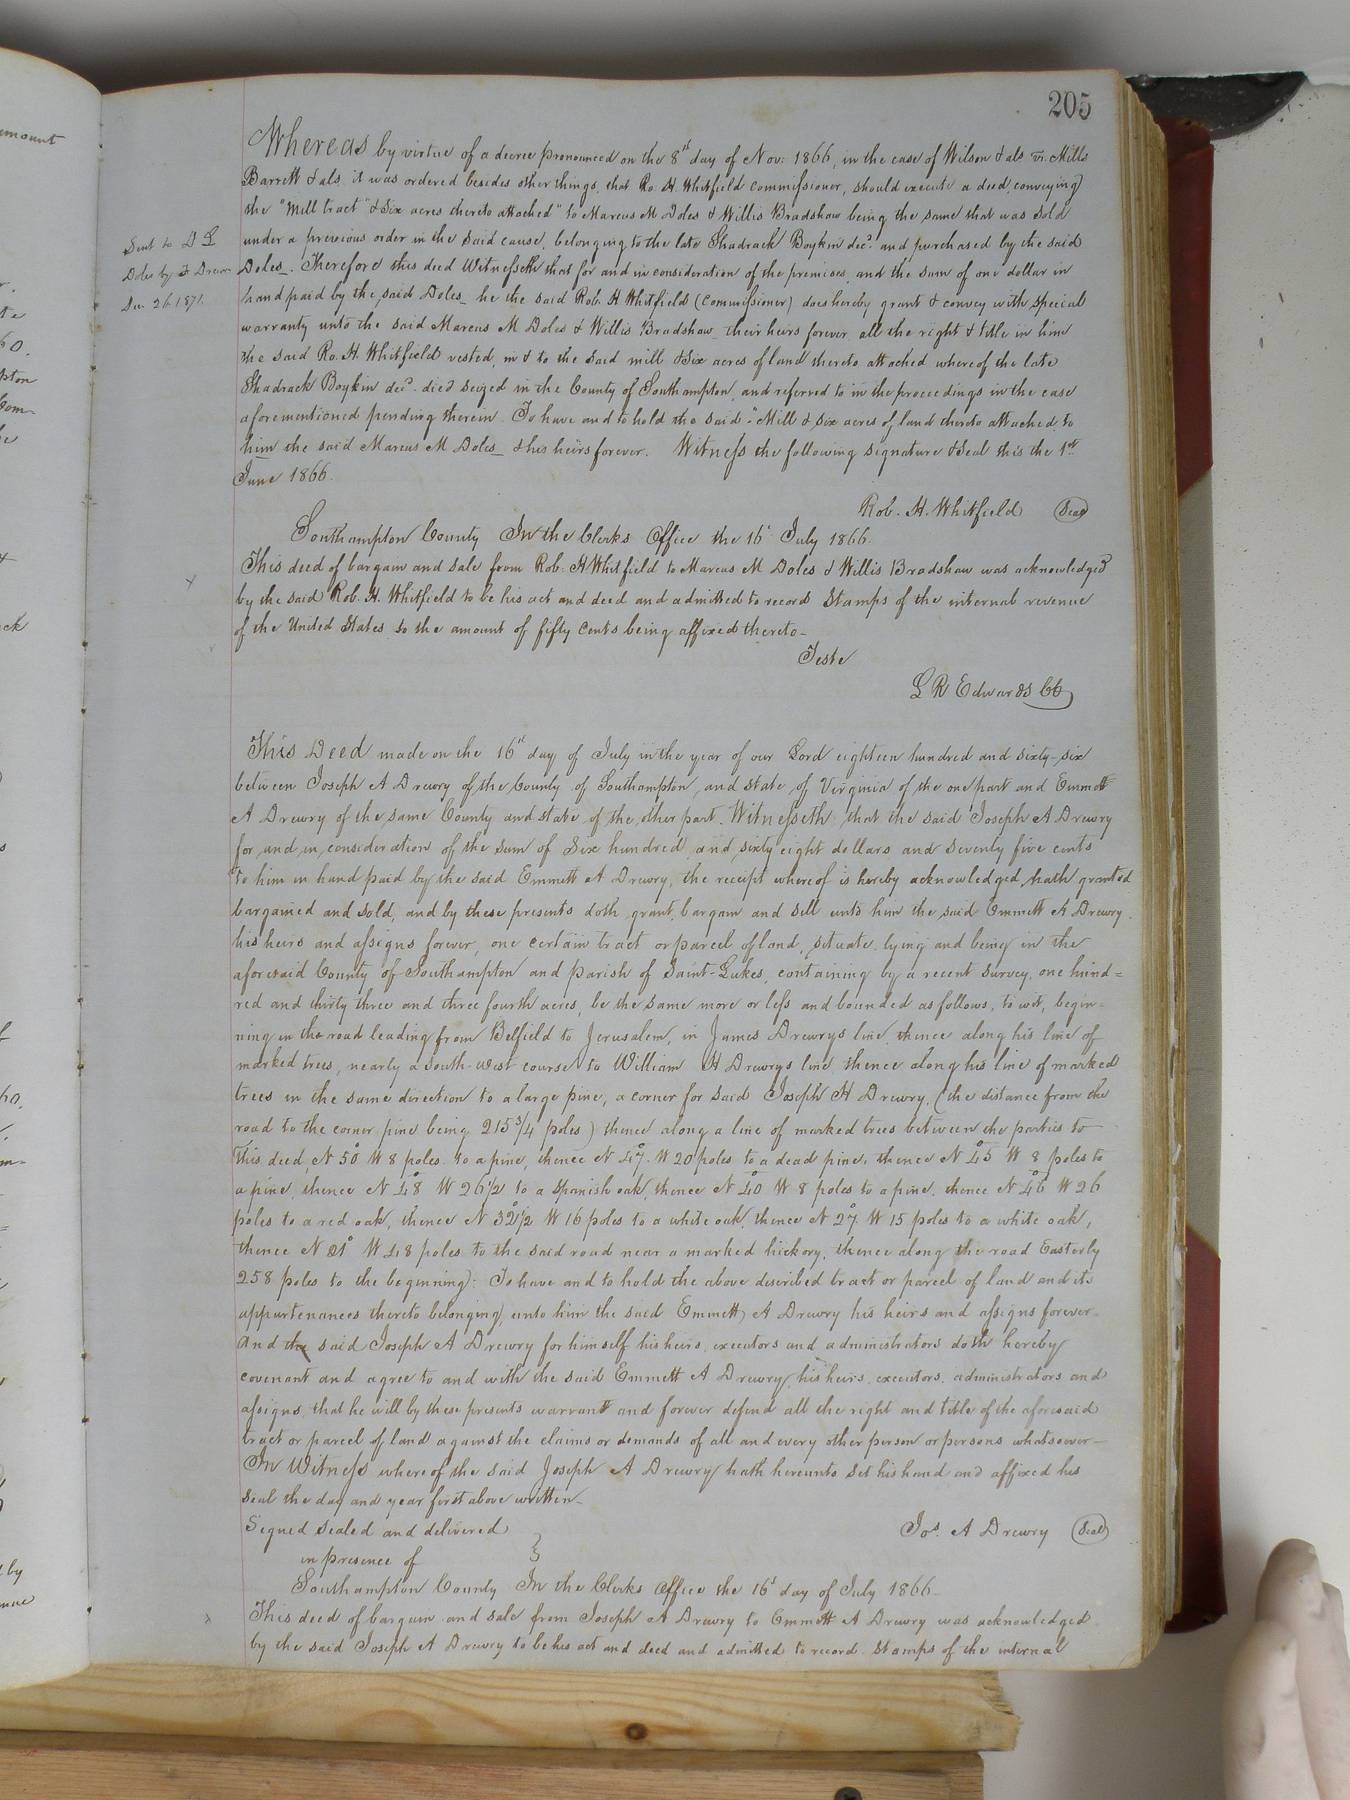 205
Whereas by virtue of a decree pronounced on the 8th day of Nov: 1866, in the case of Wilson & als vs. Mills
Barrett & als it was ordered besides other things, that Ro. H. Whitfield commissioner, should execute a deed conveying
the "Mill tract" & Six acres thereto attached" to Marcus M Doles & Willis Bradshaw being the same that was sold
under a previous order in the said cause, belonging to the late Shadrack Boykin decd. and purchased by the said
Doles_. Therefore this deed Witnesseth that for and in consideration of the premises, and the sum of one dollar in
hand paid by the said Doles_ he the said Rob. H Whitfield (Commissioner) does hereby grant & convey with special
warranty unto the said Marcus M Doles & Willis Bradshaw their heirs forever all the right & title in him
the said Ro. H. Whitfield vested, in & to the said mill & Six acres of land thereto attached whereof the late
Shadrack Boykin decd. died seized in the County of Southampton, and referred to in the proceedings in the case
aforementioned pending therein. To have and to hold the said "Mill & six acres of land thereto attached to
him the said Marcus M Doles_ & his heirs forever. Witness the following signature & Seal this the 1st
June 1866.
Sent to D L
Doles by F Drewry
Dec 26 1871.
Rob. H. Whitfield (Seal)
Southampton County In the Clerks Office the 16t July 1866.
This deed of bargain and sale from Rob. H Whitfield to Marcus M Doles & Willis Bradshaw was acknowledged
by the said Rob. H. Whitfield to be his act and deed and admitted to record Stamps of the internal revenue
of the United States to the amount of fifty cents being affixed thereto_
Teste
L R Edwards CC
This Deed made on the 16t day of July in the year of our Lord eighteen hundred and sixty-six
between Joseph A Drewry of the County of Southampton, and state of Virginia of the one part and Emmett
A Drewry of the same County and state of the other part. Witnesseth: that the said Joseph A Drewry
for and in consideration of the sum of Six hundred and sixty eight dollars and seventy five cents
to him in hand paid by the said Emmett A Drewry, the receipt whereof is hereby acknowledged, hath granted
bargained and sold, and by these presents doth grant, bargain and sell unto him the said Emmett A Drewry.
his heirs and assigns forever, one certain tract or parcel of land, situate, lying and being in the
aforesaid County of Southampton and parish of Saint-Lukes, containing by a recent survey, one hund=
red and thirty three and three fourth acres, be the same more or less and bounded as follows, to wit, begin-
ning in the road leading from Belfield to Jerusalem, in James Drewrys line, thence along his line of
marked trees, nearly a south-west course to William H Drewrys line thence along his line of marked
trees in the same direction to a large pine, a corner for said Joseph H Drewry, (the distance from the
road to the corner pine being 215 3/4 poles) thence along a line of marked trees between the parties to
this deed, N 50° W 8 poles to a pine, thence N 47° W 20 poles to a dead pine, thence N 45° W 8 poles to
a pine, thence N 48° W 26 1/2 to a Spanish oak, thence N 40° W 8 poles to a pine, thence N 46° W 26
poles to a red oak, thence N 32° 1/2 W 16 poles to a white oak, thence N 27° W 15 poles to a white oak,
thence N 21° W 48 poles to the said road near a marked hickory, thence along the road Easterly
258 poles to the beginning): To have and to hold the above discribed tract or parcel of land and its
appurtenances thereto belonging unto him the said Emmett A Drewry his heirs and assigns forever.
And the said Joseph A Drewry for himself his heirs, executors and administrators doth hereby
covenant and agree to and with the said Emmett A Drewry, his heirs, executors, administrators and
assigns, that he will by these presents warrant and forever defend all the right and title of the aforesaid
tract or parcel of land against the claims or demands of all and every other person or persons whatsoever—
In Witness whereof the said Joseph A Drewry hath hereunto set his hand and affixed his
seal the day and year first above written_
Signed Sealed and delivered }
in presence of
Jos. A Drewry (Seal)
Southampton County In the Clerks Office the 16t day of July 1866.
This deed of bargain and sale from Joseph A Drewry to Emmett A Drewry was acknowledged
by the said Joseph A Drewry to be his act and deed and admitted to record. Stamps of the internal